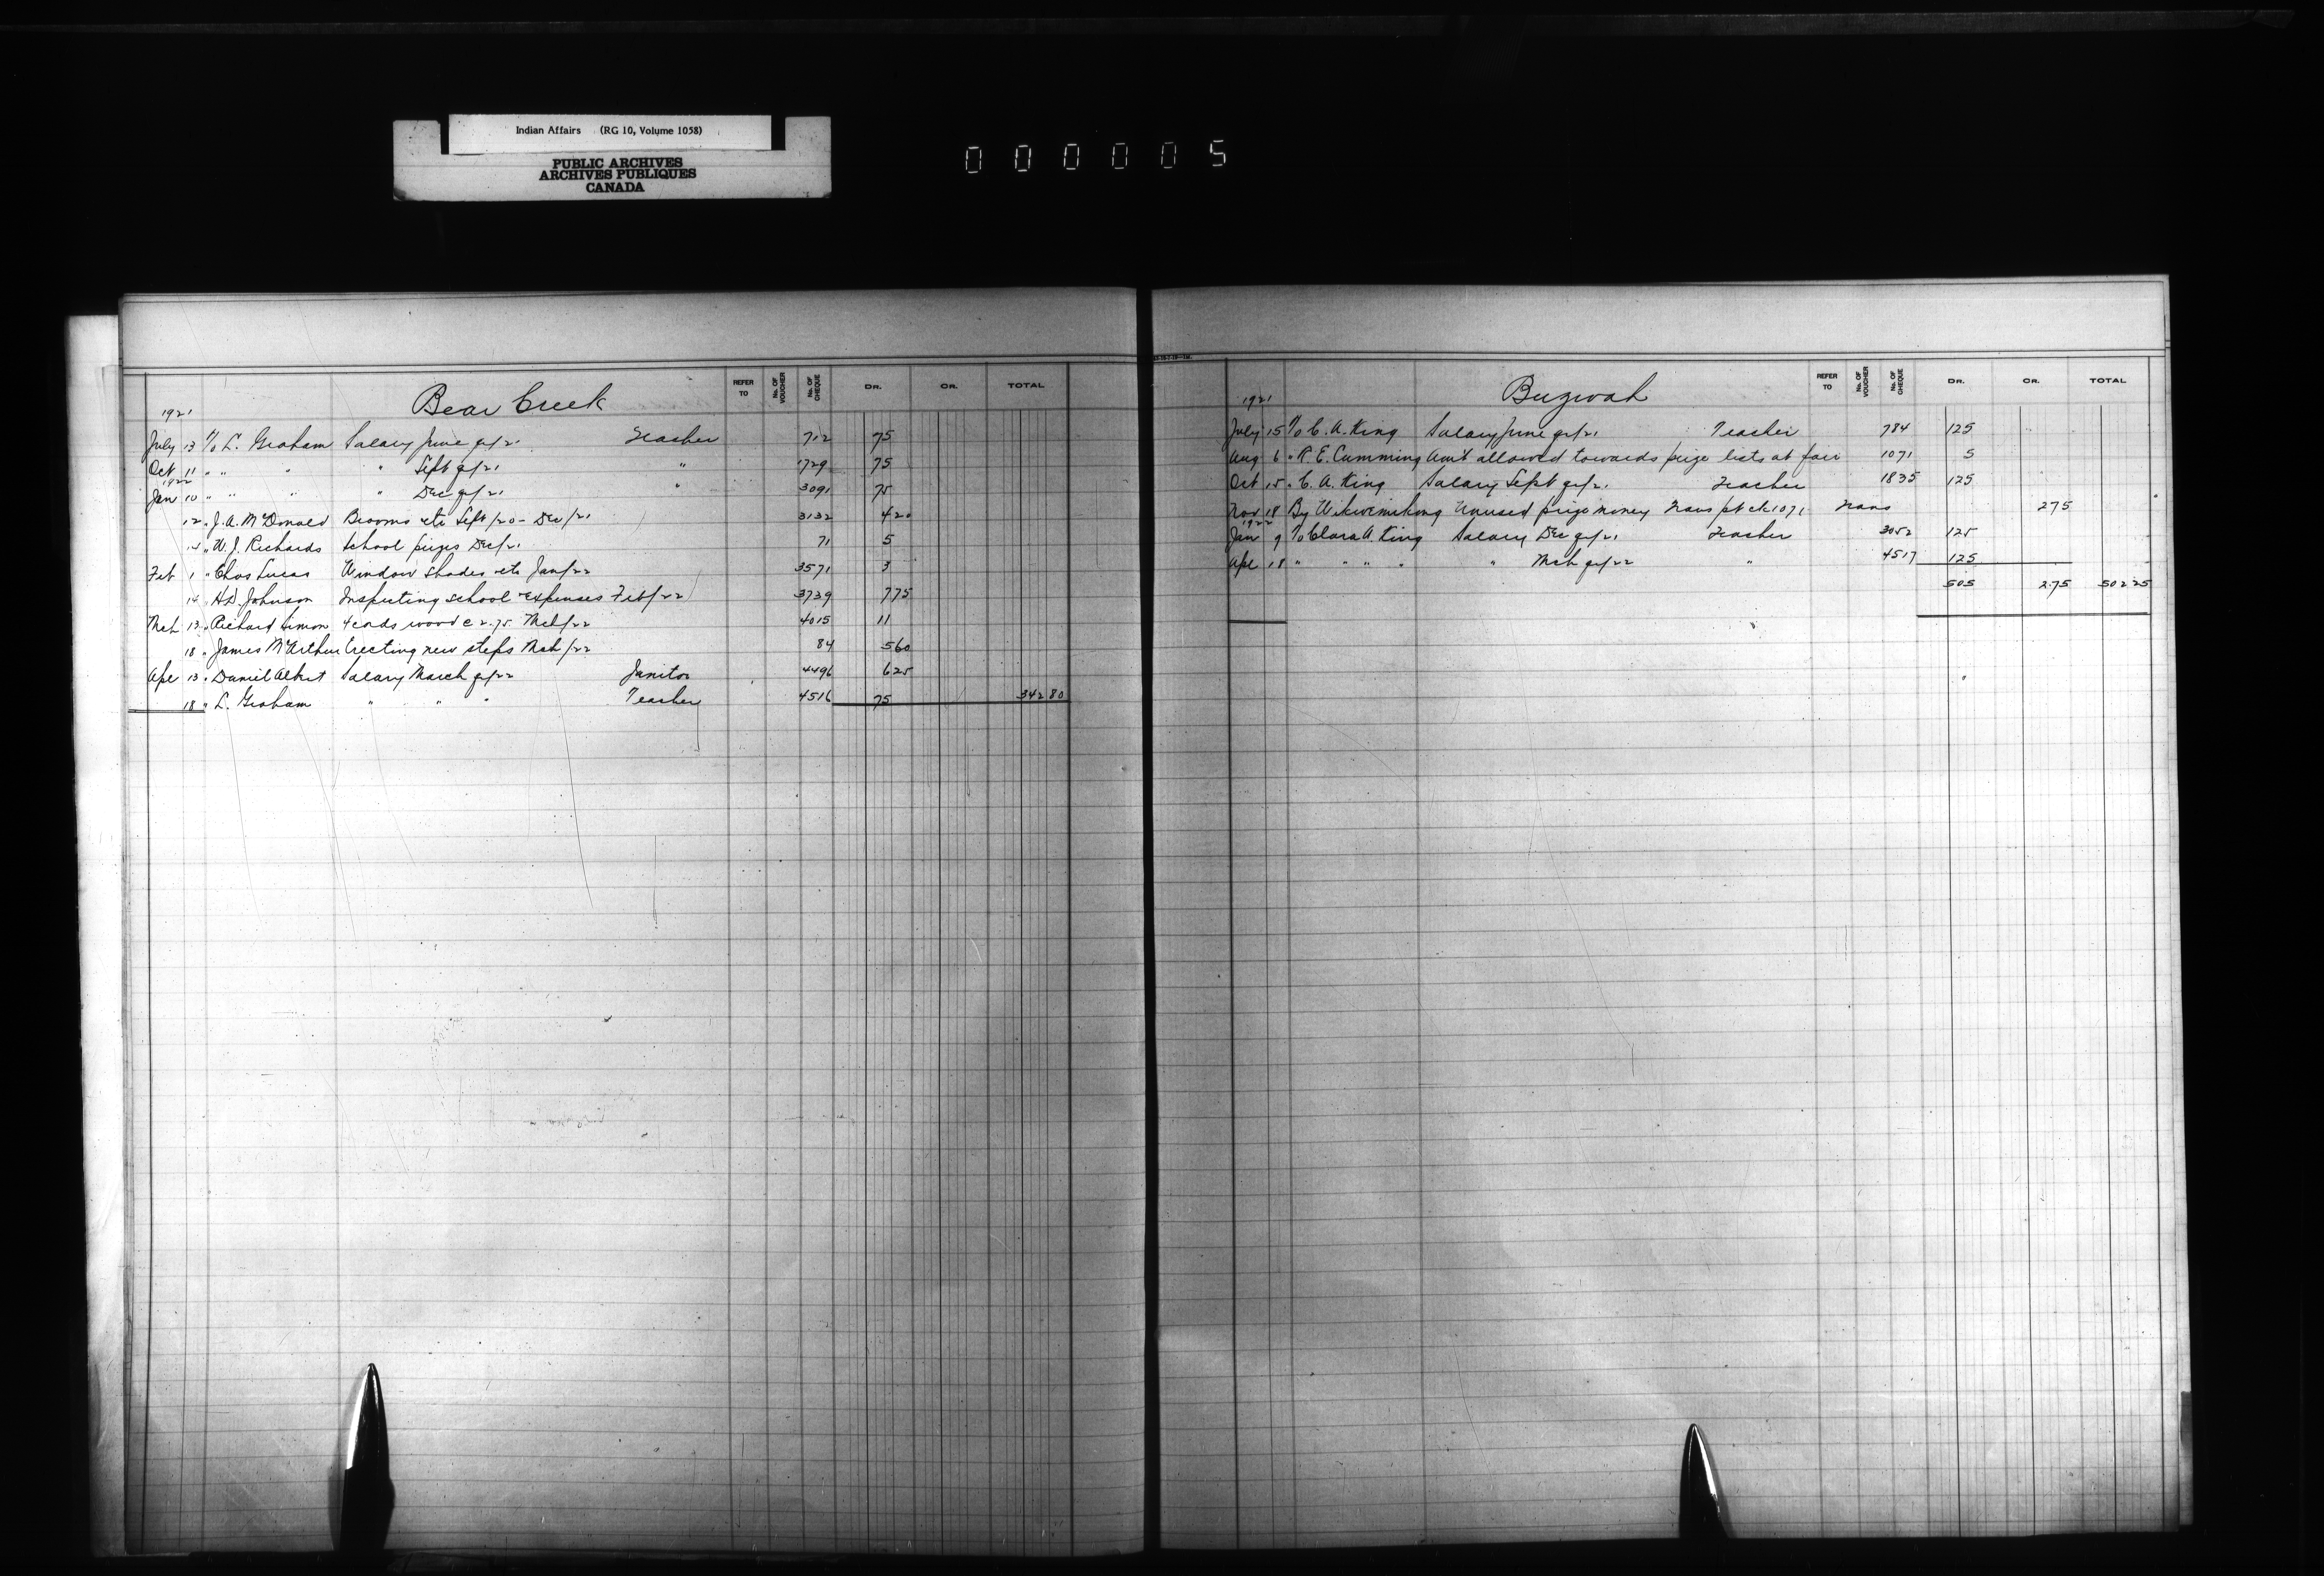 Indian Affairs (RG 10, Volume 1058)
PUBLIC ARCHIVES
ARCHIVES PUBLIQUES
CANADA
000005
Bear Creek
REFER TO No. OF VOUCHER No. OF CHEQUE DR. CR. TOTAL
1921
July 13 To L. Graham Salary June qr/21 Teacher 712 75
Oct 11 " " " " Sept qr/21 " 1729 75
1922
Jan 10 " " " " Dec qr/21 " 3091 75
12 " J. A. McDonald Brooms etc Sept/20 - Dec/21 3132 4 20
14 " W. J. Richards School prizes Dec/21 71 5
Feb 1 " Chas Lucas Window shades etc Jan/22 3571 3
14 " H.D. Johnson Inspecting school expenses Feb/22 3739 7 75
Mch 13 " Richard Simon 4 cords wood @ 2.75 Mch/22 4015 11
18 " James McArthur Erecting new steps Mch/22 84 5 60
Apl 13 " Daniel Albert Salary March qr/22 Janitor 4496 6 25
18 " L. Graham " " " Teacher 4516 75 342 80
Buzwah
REFER TO No. OF VOUCHER No. OF CHEQUE DR. CR. TOTAL
1921
July 15 To C. A. King Salary June qr/21 Teacher 784 125
Aug 6 " R. E. Cumming Am't allowed towards prize lists at fair 1071 5
Oct 15 " C. A. King Salary Sept qr/21 Teacher 1835 125
Nov 18 By Wikwemikong Unused prize money Trans pt ch 1071 Trans 2 75
1922
Jan 9 To Clara A. King Salary Dec qr/21 Teacher 3052 125
Apl 18 " " " " " Mch qr/22 " 4517 125
505 2 75 502 25